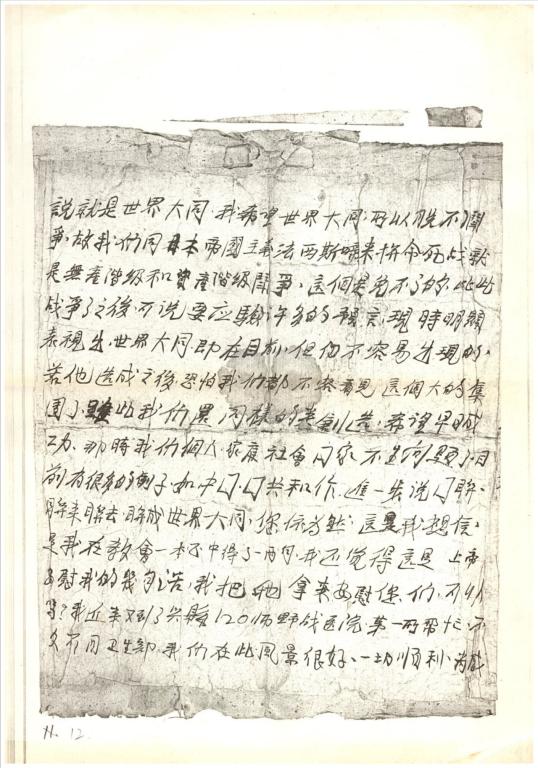 說就是世界大同·我希望世界大同·所以脱不了鬭
爭·故我們同日本帝國主義法西斯啼来拚命死战就
是無產階級和資產階級鬭爭、這個是免不了的·此
战爭了之後·可说要应驗許多的預言·現時明顯
表現出·世界大同·即在目前·但仍不容易出現的·
若他造成之後·恐怕我们都不容看見這個大的集
團·雖此我们異同樣的共創造·希望早日成
功·那時我们個人·家庭社會国家不是问题了·目
前有很多的例子·如中囗·囗共和作·進一步说囗聯·
聯来聯去·聯成世界大同·您信为然·這是我想信·
是我在教會一本子中得了一两句·我还觉得這是上帝
安慰我的幾句话·我把他拿来安慰您们·可以
吗?我近来又到了兴縣120师野战医院·第一所帮忙·不
久不同卫生部·我们在此風景很好、一切顺利、為成
No 12.